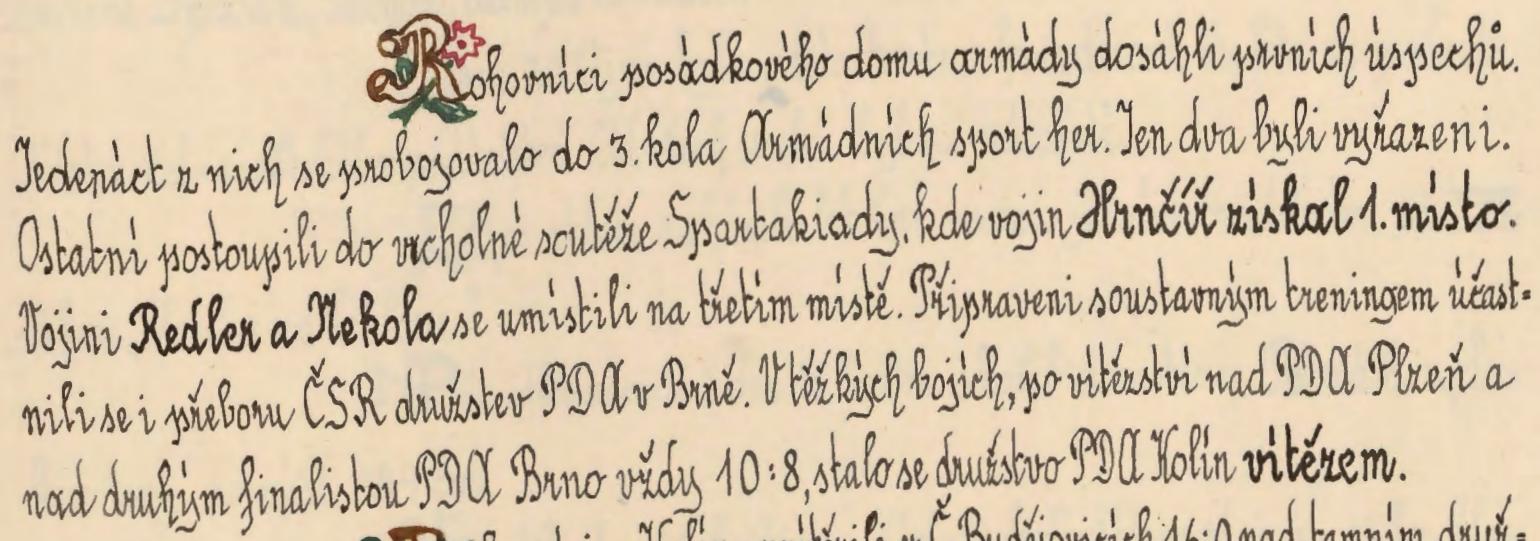 Rohovníci posádkového domu armády dosáhli prvních úspechů.
Jedenáct z nich se probojovalo do 3. kola Armádních sport her. Jen dva byli vyřazeni.
Ostatní postoupili do vrcholné soutěže Spartakiady, kde vojín Hrnčíř získal 1. místo.
Vojíni Redler a Nekola se umístili na třetím místě. Připraveni soustavným treningem účast=
nili se i přeboru ČSR družstev PDA v Brně. V těžkých bojích, po vítězství nad PDA Plzeň a
nad druhým finalistou PDA Brno vždy 10:8, stalo se družstvo PDA Kolín vítězem.
Č. Budějovicích 16:0 nad tamním druž=